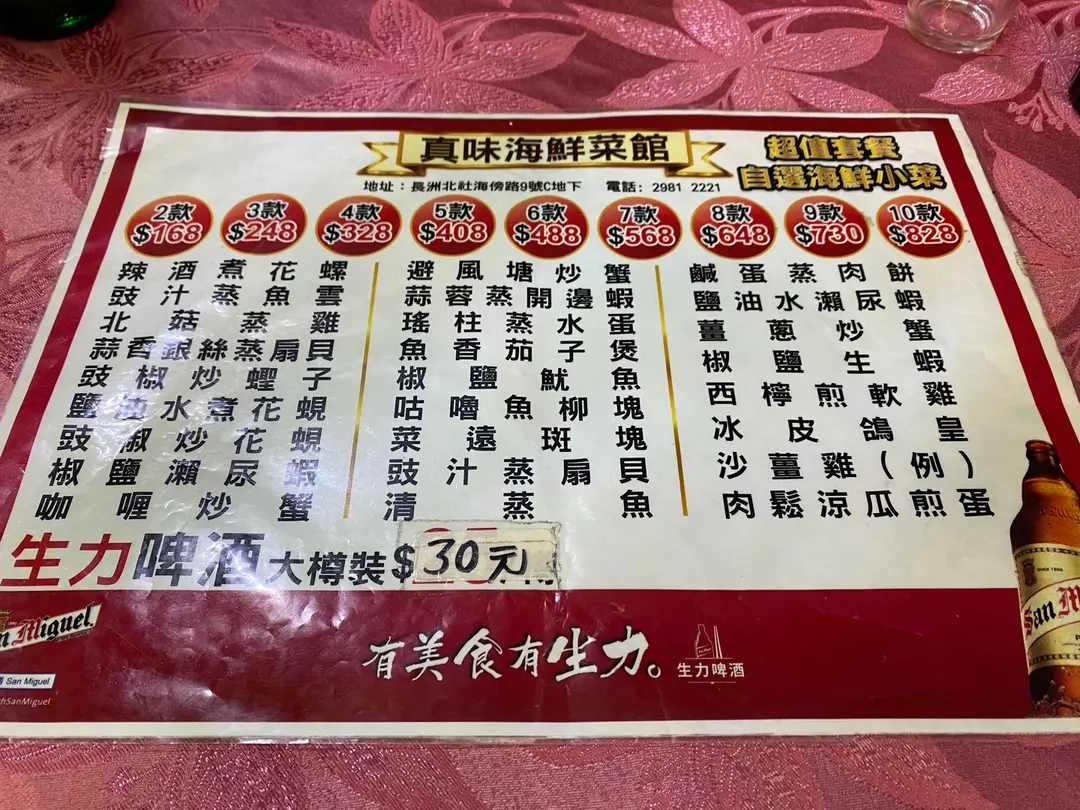 真味海鮮菜館
超值套餐
自選海鮮小菜
地址：長洲北社海傍路9號C地下 電話: 2981 2221
2款 $168
3款 $248
4款 $328
5款 $408
6款 $488
7款 $568
8款 $648
9款 $730
10款 $828
辣酒煮花螺
豉汁蒸魚雲
北菇蒸雞
蒜香銀絲蒸扇貝
豉椒炒蟶子
鹽油水煮花蜆
豉椒炒花蜆
椒鹽瀨尿蝦
咖喱炒蟹
避風塘炒蟹
蒜蓉蒸開邊蝦
瑤柱蒸水蛋
魚香茄子煲
椒鹽魷魚
咕嚕魚柳塊
菜遠斑塊
豉汁蒸扇貝
清蒸魚
鹹蛋蒸肉餅
鹽油水瀨尿蝦
薑蔥炒蟹
椒鹽生蝦
西檸煎軟雞
冰皮鴿皇
沙薑雞（例）
肉鬆涼瓜煎蛋
生力啤酒 大樽裝 $30元
San Miguel
San Miguel
hSanMiguel
有美食有生力。
生力啤酒
SINCE 1890
San M